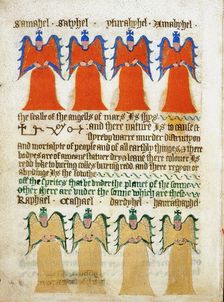 Samahel · Satyhel · yturahyhel · Amabyhel ·
the seale of the angells of mars is thys
and there nature is to cause &
styrre up warre murder distructyon
and mortalyte of people and of all earthly thinges & there
bodyes are of a meane stature drye & leane there colloure is
redd lyke to burning coles burning redd. and there region or
abydinge is the Southe
off the spirites that be under the planet of the sonne
other there are under the sonne which are these
Raphaell · Cashael · Dardyhel · hanrathaphel